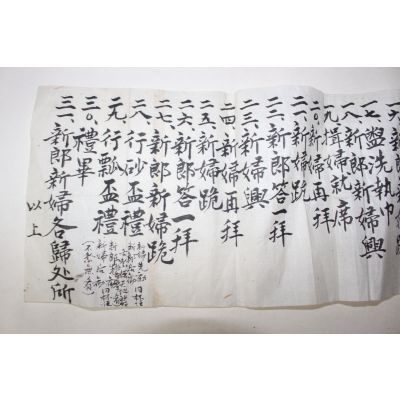 一六、新郎新婦跪
一七、盥洗執巾
一八、新郎新婦興
一九、揖婦就席
二〇、新婦再拜
二一、新婦跪
二二、新郎答一拜
二三、新婦興
二四、新婦再拜
二五、新婦跪
二六、新郎答一拜
二七、新郎新婦跪
二八、行砂盃禮
二九、行瓢盃禮
三〇、禮畢
三一、新郎新婦各歸処所
以上